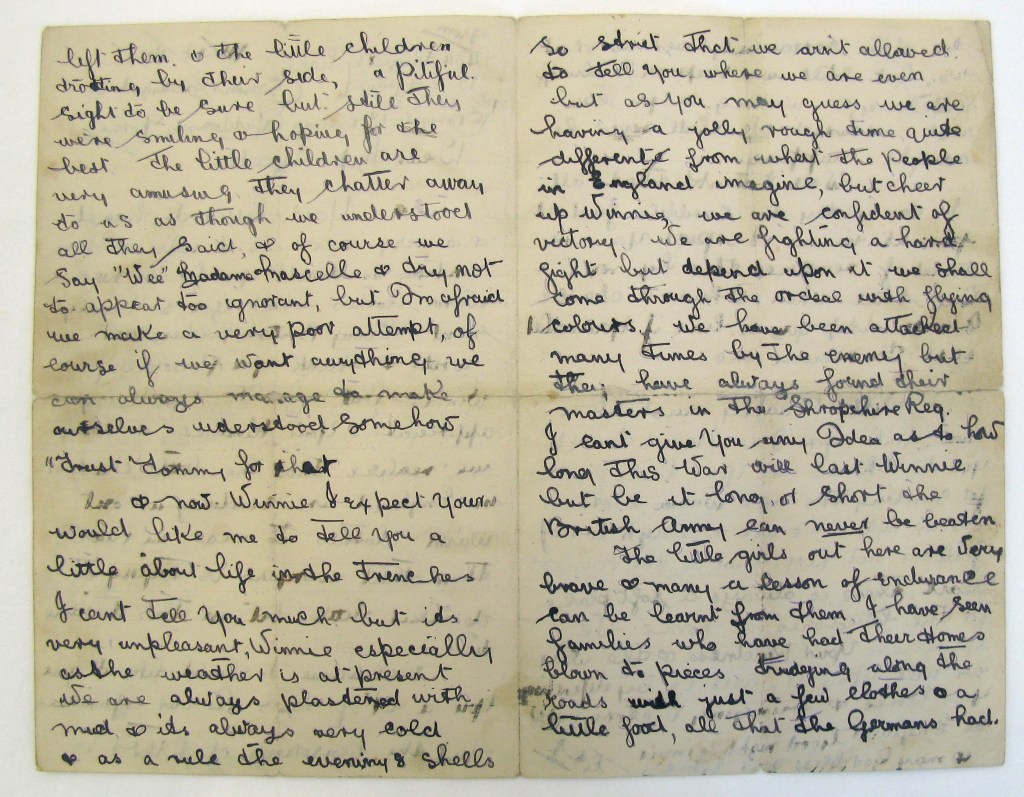 left them. & the little children
trotting by their side, a Pitiful.
sight to be sure but still they
were smiling & hoping for the
best the little children are
very amusing they chatter away
to us as though we understood
all they said, & of course we
say "Wee" Madame Mascelle & try not
to appear too ignorant, but I'm afraid
we make a very poor attempt, of
course if we want anything we
can always manage to make
ourselves understood somehow
"Trust Tommy for that
& now Winnie I expect your
would like me to tell you a
little about life in the trenches
I cant tell you much but its
very unpleasant, Winnie especially
as the weather is at present
We are always plastered with
mud & its always very cold
& as a rule the enemys shells
so strict that we ain't allowed
to tell you where we are even
but as you may guess we are
having a jolly rough time quite
different from what the People
in England imagine, but cheer
up Winnie, we are confident of
victory. We are fighting a hard
fight but depend upon it we shall
come through the ordeal with flying
colours. We have been attacked
many times by the enemy but
they have always found their
masters in the Shropshire Reg.
I cant give you any Idea as to how
long this War will last Winnie
but be it long, or short the
British Army can never be beaten
The little girls out here are very
brave & many a lesson of endurance
can be learnt from them. I have seen
families who have had their Homes
blown to pieces trudging along the
roads with just a few clothes & a
little food, all that the Germans had.